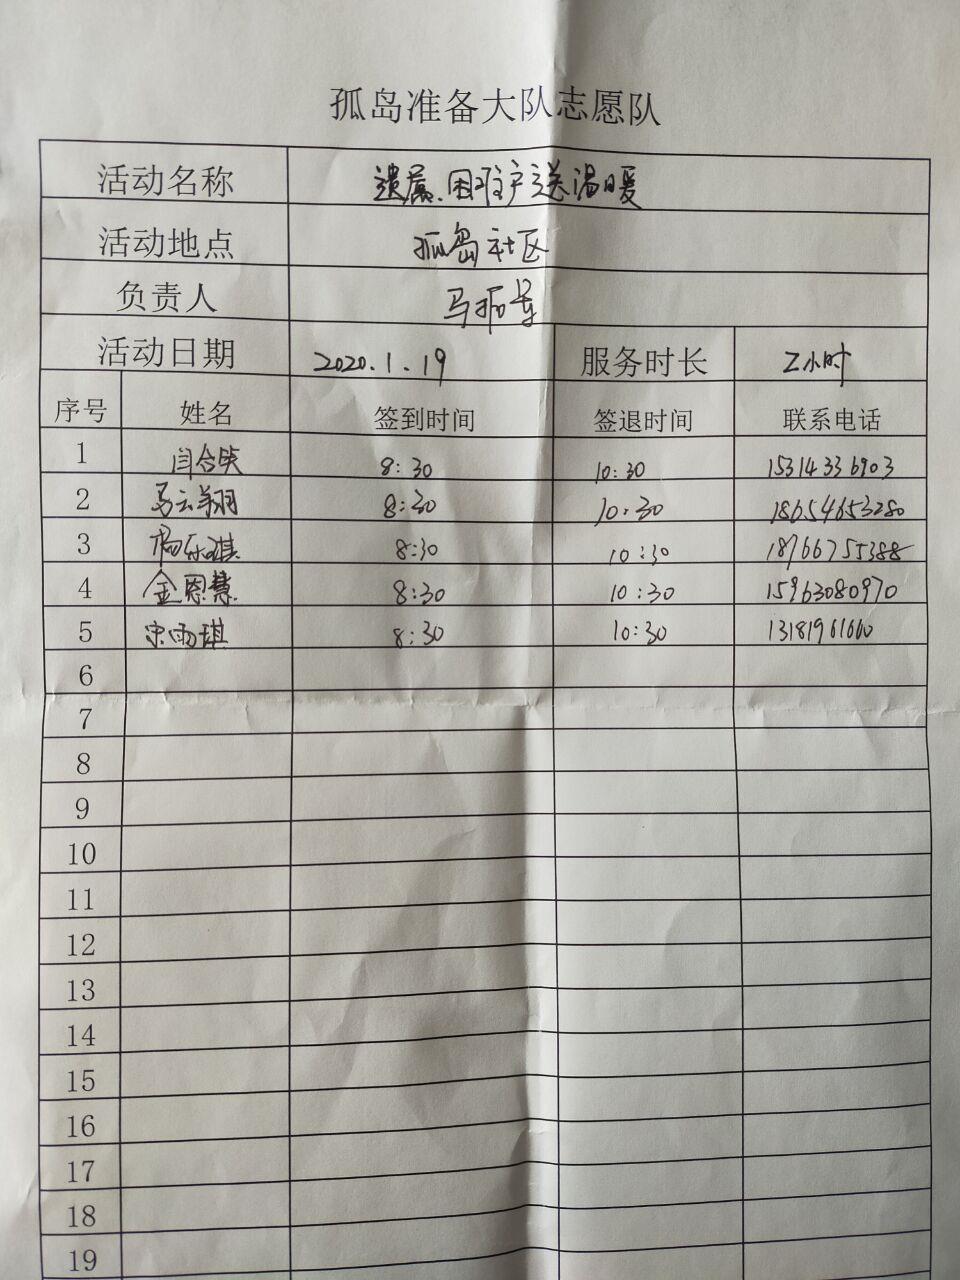 孤岛准备大队志愿队
活动名称 遗属、困难户送温暖
活动地点 孤岛社区
负责人 马振军
活动日期 2020.1.19 服务时长 2小时
序号 姓名 签到时间 签退时间 联系电话
1 闫合 8:30 10:30 15314336903
2 马云翔 8:30 10:30 18654653280
3 杨乐琪 8:30 10:30 18766755388
4 金恩慧 8:30 10:30 15963080970
5 宋雨琪 8:30 10:30 13181961660
6
7
8
9
10
11
12
13
14
15
16
17
18
19